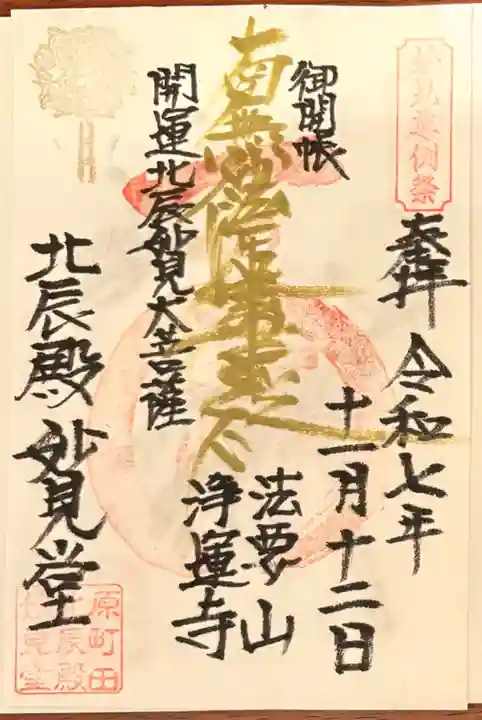 妙見大例祭
奉拝
令和七年
十一月十二日
御開帳
法要山
浄運寺
南無妙法蓮華経
開運北辰妙見大菩薩
北辰殿妙見堂
原町田
北辰殿
妙見堂